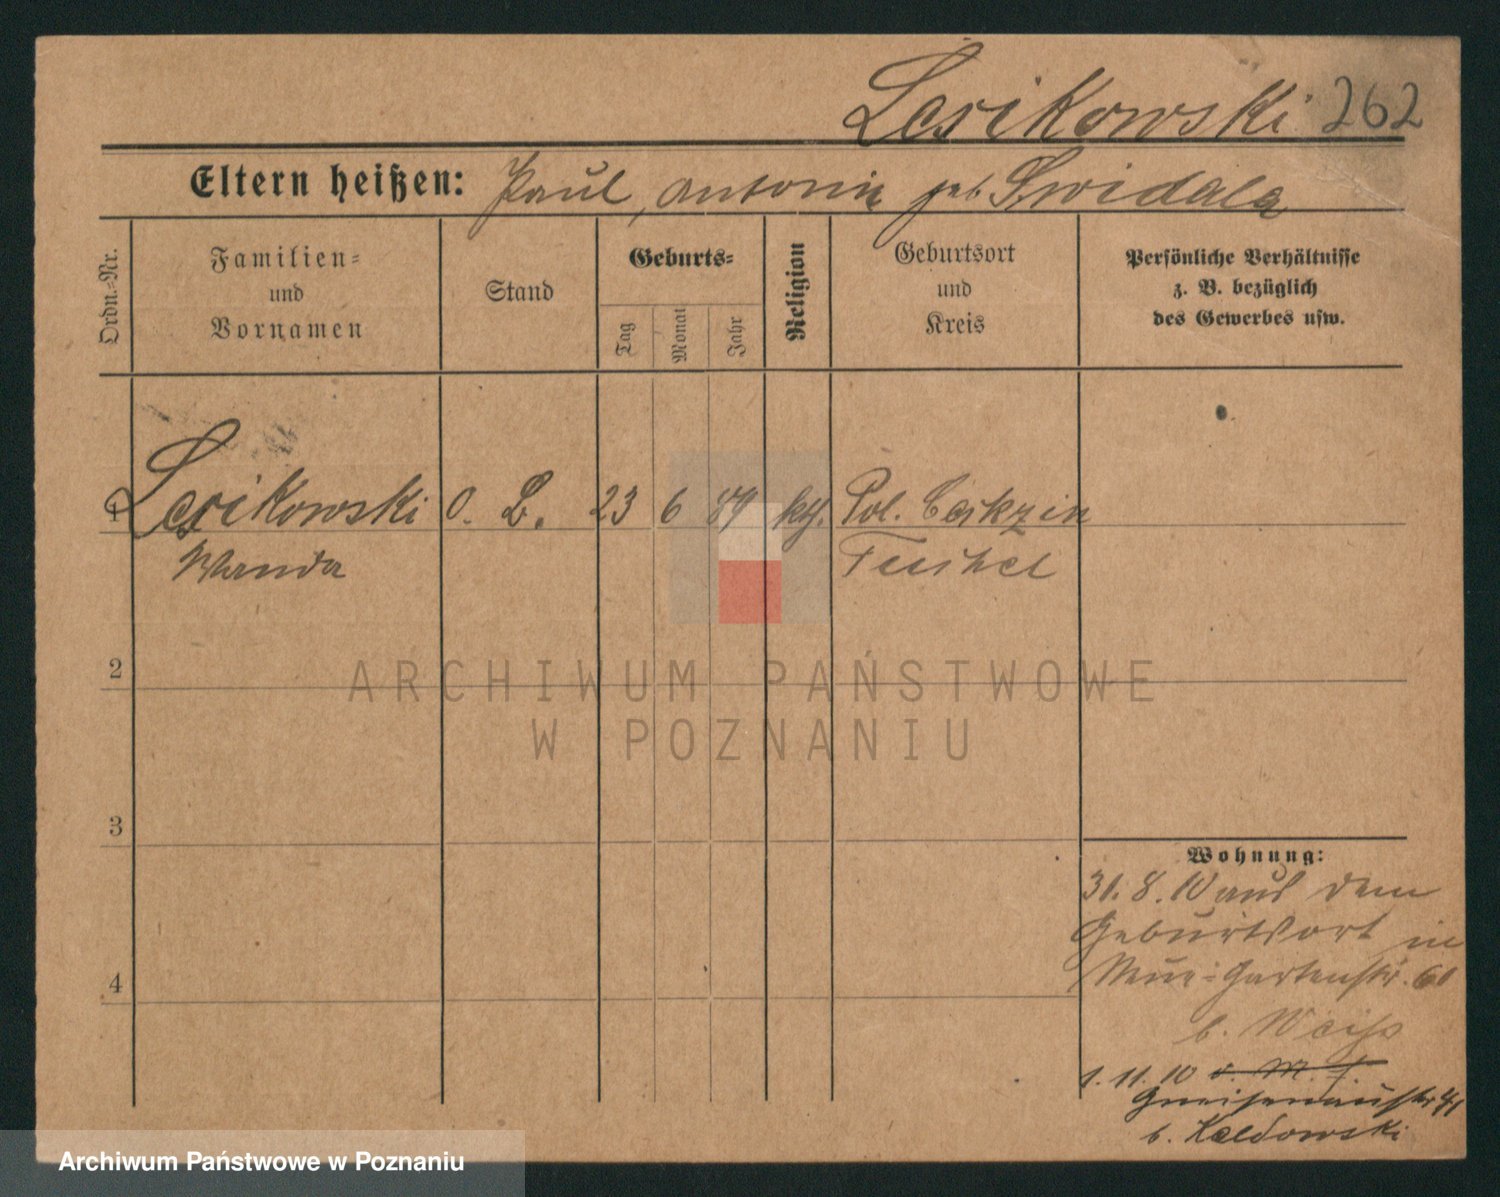 Lesikowski 262
Eltern heißen: Paul, Antonie geb. Swidala
Ordn.=Nr.
Familien=
und
Vornamen
Stand
Geburts=
Tag
Monat
Jahr
Religion
Geburtsort
und
Kreis
Persönliche Verhältnisse
z. B. bezüglich
des Gewerbes usw.
1 Lesikowski o. B. 23 6 89 kth. Pol. Cekzin
Wanda Tuchel
2
ARCHIWUM PAŃSTWOWE
W POZNANIU
3
Wohnung:
31. 8. 10 aus dem
Geburtsort in
Neue-Gartenstr. 60
4
b. Weiß
1. 11. 10
Gneisenaustr. 41
b. Kaldowski
Archiwum Państwowe w Poznaniu